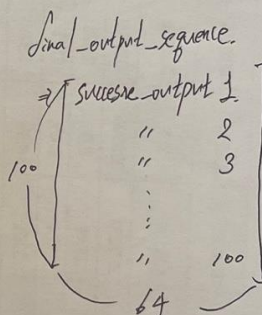 final_output_sequence.
⇒ succesre_output 1
〃 2
〃 3
100
〃 100
64